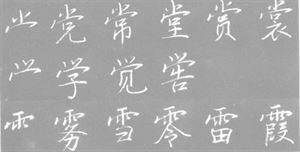 ⺌ 党 常 堂 赏 裳
⺍ 学 觉 喾
⻗ 雾 雪 零 雷 霞